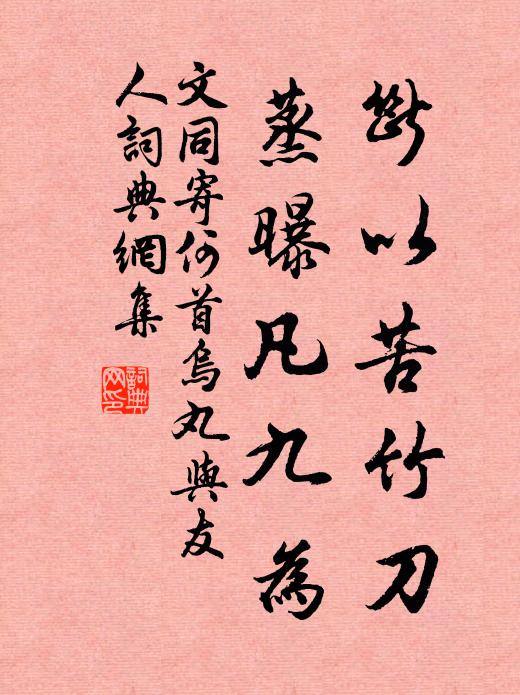 斷以苦竹刀
蒸曝凡九為
文同寄何首烏丸與友
人詞典網集
詞典
网印